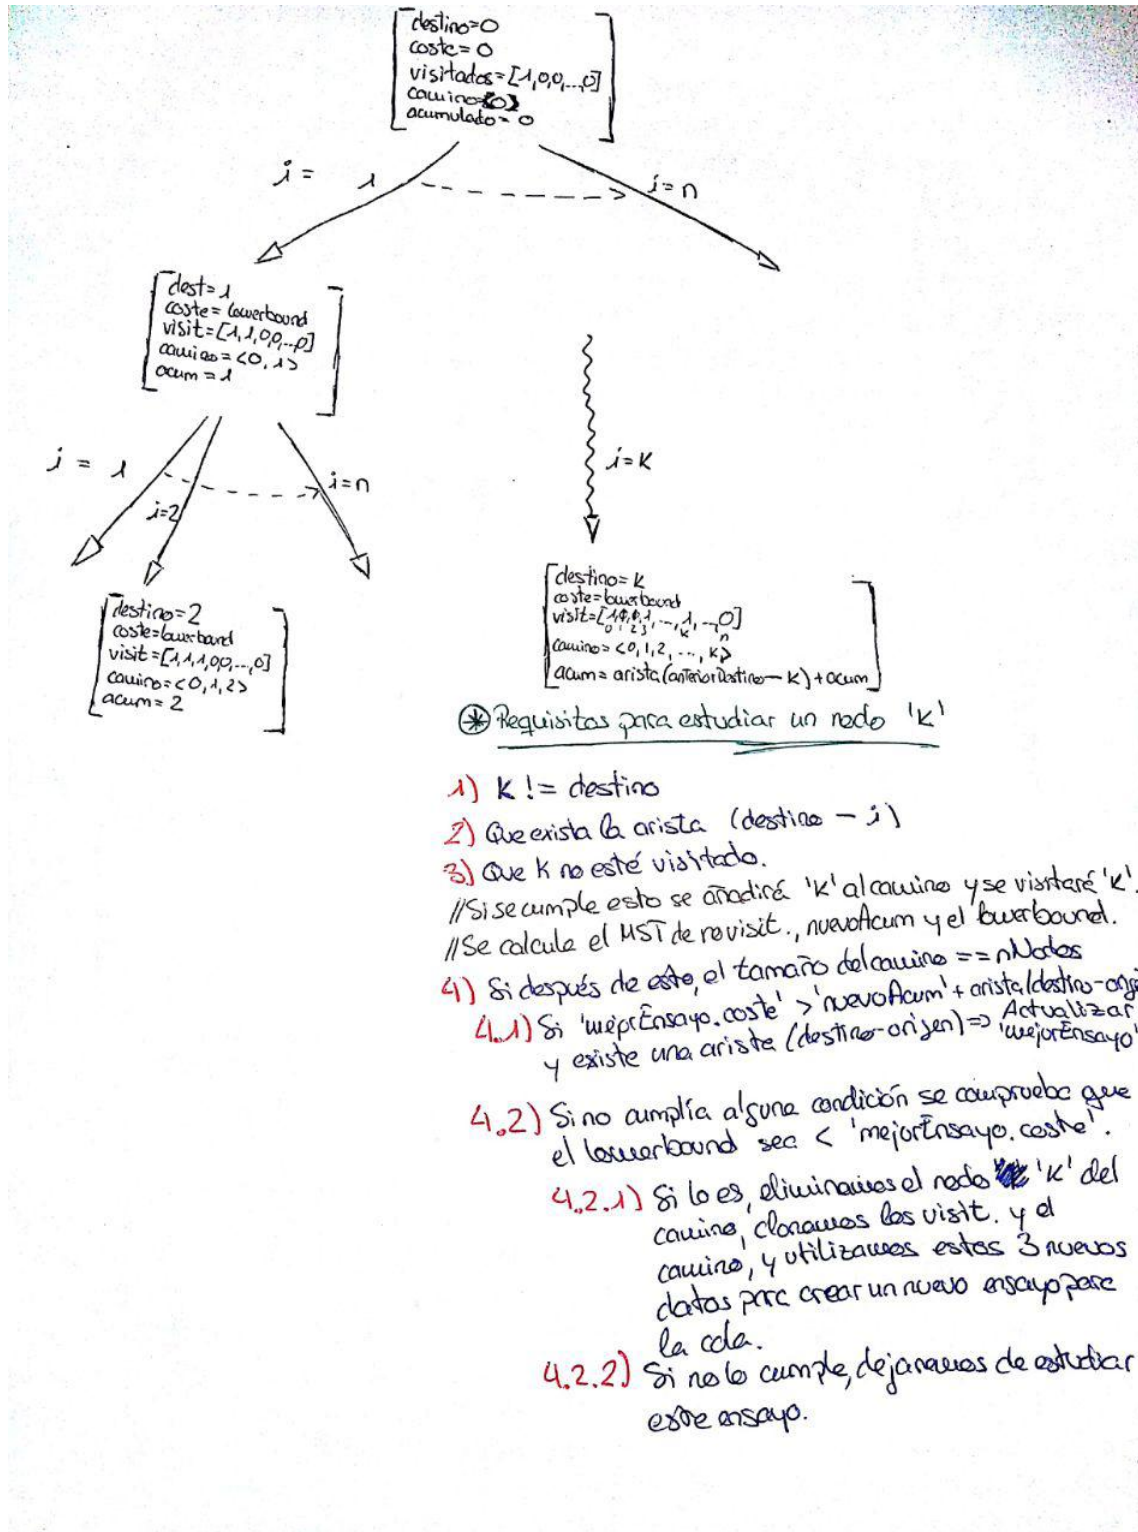 destino=0
coste=0
visitados=[1,0,0,...,0]
camino={0}
acumulado=0
i = 1
i=n
dest=1
coste=lowerbound
visit=[1,1,0,0,...0]
camino=<0,1>
acum=1
i = 1
i=2
i=n
i=K
destino=2
coste=lowerbound
visit=[1,1,1,0,0,...,0]
camino=<0,1,2>
acum=2
destino=K
coste=lowerbound
visit=[1,0,0,1,...,1,...,0]
0 1 2 3 K n
camino=<0,1,2,...,K>
acum=arista(anteriorDestino-K)+acum
* Requisitos para estudiar un nodo 'K'
1) K != destino
2) Que exista la arista (destino - i)
3) Que K no esté visitado.
//Si se cumple esto se añadirá 'K' al camino y se visitará 'K'.
//Se calcula el MST de no visit., nuevoAcum y el lowerbound.
4) Si después de esto, el tamaño del camino == nNodos
4.1) Si 'mejorEnsayo.coste' > 'nuevoAcum' + arista(destino-orig
y existe una arista (destino-origen) => Actualizar
'mejorEnsayo'
4.2) Si no cumplía alguna condición se comprueba que
el lowerbound sea < 'mejorEnsayo.coste'.
4.2.1) Si lo es, eliminamos el nodo 'K' del
camino, clonamos los visit. y el
camino, y utilizamos estos 3 nuevos
datos para crear un nuevo ensayo para
la cola.
4.2.2) Si no lo cumple, dejaremos de estudiar
este ensayo.